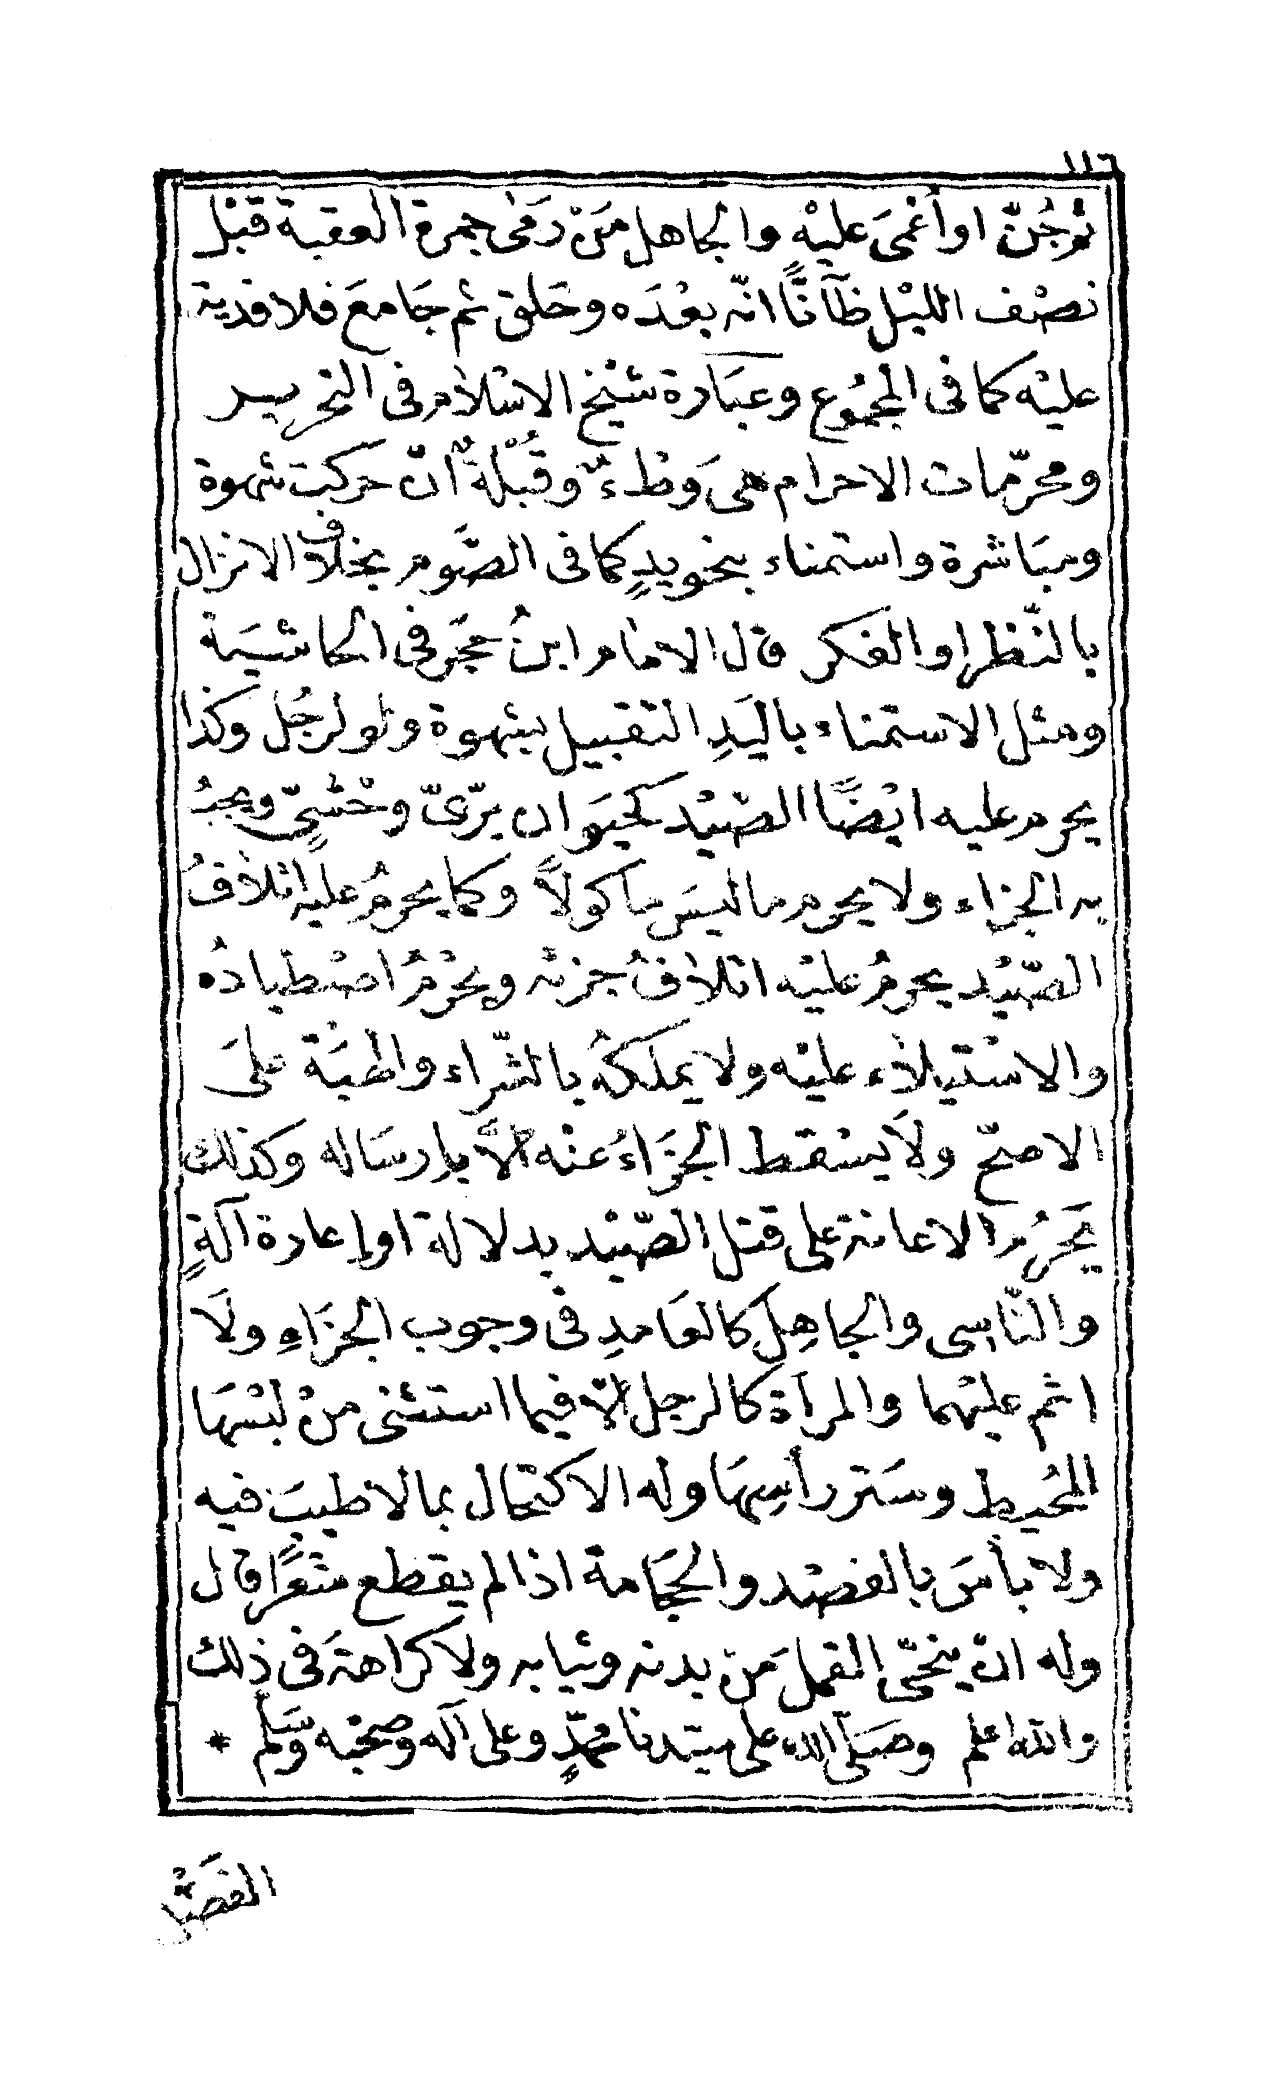 ١١٦
ثم جُنّ او أغمىَ عليْه والجاهل مَنْ رَمٰى جمرة العقبة قبْل
نصْف الليْل ظآنًّا انّه بعْدَه وحَلق ثم جَامعَ فلا فدية
عليْه كما فى المجمُوع وعبَارة شيْخ الاسْلام فى التحرير
ومحرّمات الاحرام هىَ وَطْءٌ وقُبْلَةٌ انْ حركت شهوة
ومبَاشرة واستمناء بنحو يدٍ كما فى الصَّوم بخلاف الانزال
بالنّظر او الفكر قال الامام ابنُ حجَر فى الحاشيَة
ومثل الاستمناء باليَدِ التقبيل بشهوة ولو لرجُل وكذا
يحرم عليه ايْضًا الصّيْد كحيَوان برّىّ وحْشىٍّ ويجبُ
به الجزاء ولا يحرم ما ليسَ مأكولاً وكما يحرمُ عليه اتلافُ
الصّيْد يحرمُ عليْه اتلافُ جزئه ويحْرُمُ اصْطيادُه
والاسْتيلاء عليْه ولا يملكهُ بالشّراء والهبَة علىَ
الاصحّ ولاَ يسْقط الجزَاءُ عنْه الاّ بإرسَاله وكذلك
يَحْرُم الاعانة على قتل الصّيْد بدلالة او إعارة آلةٍ
والنّاسِى والجاهِلِ كالعَامدِ فى وجوب الجزَاءِ ولَا
اثم عليْهما والمرأة كالرجل الاّ فيما استثنى منْ لبْسهَا
المحُيط وسَتر رأسِهَا وله الاكتحال بما لا طيبَ فيه
ولا بأسَ بالفصْد والحجَامة اذا لم يقطع شعَرًا قال
وله انْ ينحّى القمل مَنْ بدنه وثيابه ولا كراهةَ فى ذلك
والله اعلم وصَلّى الله على سيّدنا محمّدٍ وعلى آله وصحْبه وسَلّم *
الفصْل